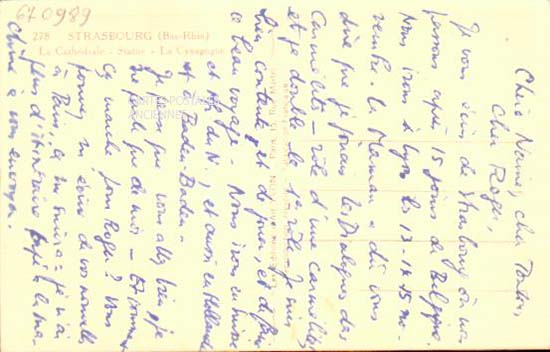 670989
278 STRASBOURG (Bas-Rhin)
La Cathédrale - Statue - La Synagogue
CARTES POSTALES
ANCIENNES
Chère Nanie, cher Tonton,
Cher Roger,
Je vous écris de Strasbourg où nous
passons après 15 jours de Belgique.
Nous irons à Lyon les 13-14-15 no-
vembre. la Maman a dû vous
dire que je jouais les Dialogues des
Carmélites - rôle d'une carmélite,
et je double le 1er rôle - Je suis
bien contente, et de jouer, et de faire
ce beau voyage. Nous irons en Suisse
et Af. du N., et aussi en Hollande
et à Baden-Baden.
Je pense que vous allez bien, je
ne parle que de moi - Et comment
ça marche pour Roger? Vous
pouvez m'écrire de vos nouvelles
à Paris, ça me suivra - je n'ai
pas d'itinéraire tapé à la ma-
chine à vous envoyer.